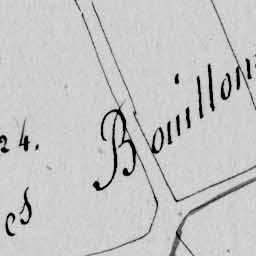 24.
Bouillon
es